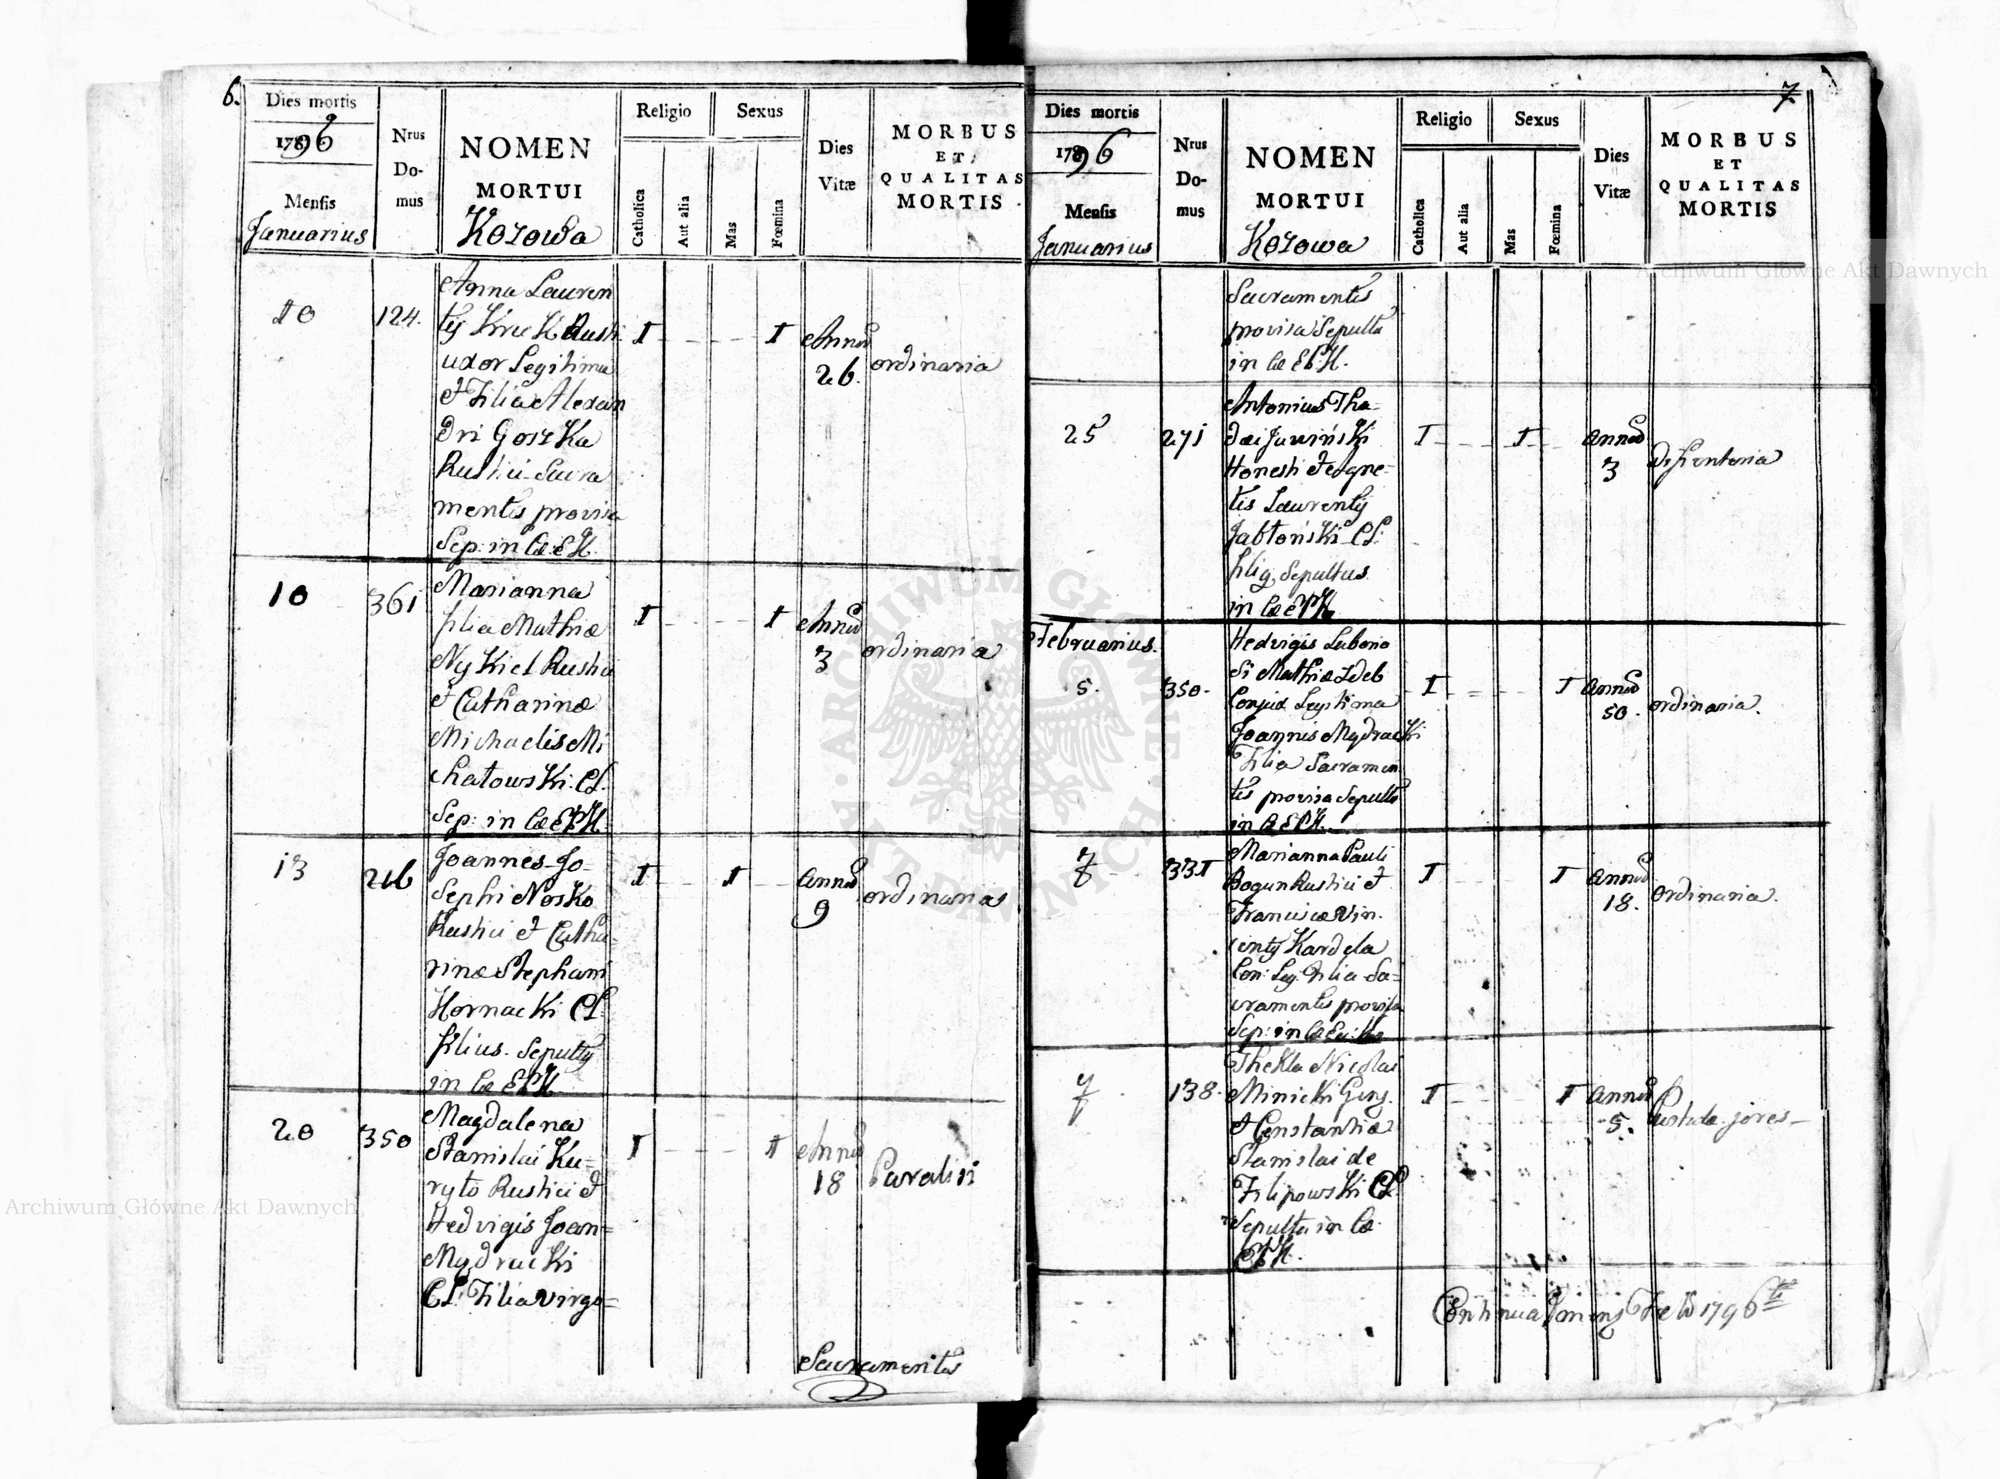 6.
Dies mortis
1796
Mensis
Januarius
Nrus
Do-
mus
NOMEN
MORTUI
Kozowa
Religio
Catholica
Aut alia
Sexus
Mas
Fœmina
Dies
Vitæ
MORBUS
ET
QUALITAS
MORTIS
10
124.
Anna Lauren
tij Kruk Rusti
uxor Legitima
et Filia Alexan
dri Goszka
Rustici Sacra
mentis provisa
Sep: in Cœ: E K.
I
I
Annor
26.
ordinaria
10
361
Marianna
filia Mathiæ
Nykiel Rustici
et Catharinæ
Michaelis Mi
chatowski: CL.
Sep: in Cœ EPK.
I
I
Annor
3
ordinaria
13
216
Joannes Jo-
sephi Nosko
Rustici et Catha-
rinæ Stephani
Hornacki CL.
filius. Sepultg
in Cœ EPK
I
I
Annor
9
ordinaria
20
350
Magdalena
Stanislai Ku-
ryto Rustici et
Hedvigis Joan=
Mydracki
CL: Filia virgo=
I
I
Annor
18
Paralisi
Sacramentis
7.
Dies mortis
1796
Mensis
Januarius
Nrus
Do-
mus
NOMEN
MORTUI
Kozowa
Religio
Catholica
Aut alia
Sexus
Mas
Fœmina
Dies
Vitæ
MORBUS
ET
QUALITAS
MORTIS
Sacramentis
provisa Sepulta
in Cœ EPK.
25
271
Antonius Tha-
dæi Juwiński
Honesti et Agne-
tis Laurentij
Jabtoński CL:
filig, Sepultus
in Cœ EPK
I
I
Annor
3
Disenteria
Februarius.
5.
350.
Hedvigis Lubono
Si Mathiæ Zdeb
Conjux Legitima
Joannis Mydracki
Filia Sacramen
tis provisa Sepulta
in C EPK.
I
I
Annor
50.
ordinaria.
7
331
Marianna Pauli
Bogun Rustici et
Franciscæ Vin.
centij Kardela
Con: Leg: Filia Sa-
cramentis provisa
Sep: in Cœ
I
I
Annor
18.
Ordinaria.
7
138.
Thekla Nicolai
Minicki Geng.
et Constantiæ
Stanislai de
Filipowski CL.
Sepulta in Cœ
EPK.
I
I
Annor
5.
Continuat mens Feb 1796ti
Archiwum Główne Akt Dawnych
Archiwum Główne Akt Dawnych
ARCHIWUM GŁÓWNE AKT DAWNYCH